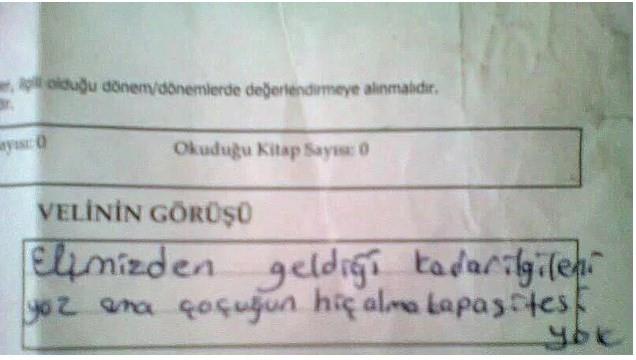 er, ilgili olduğu dönem/dönemlerde değerlendirmeye alınmalıdır.
ır.
ayısı: 0 Okuduğu Kitap Sayısı: 0
VELİNİN GÖRÜŞÜ
Elimizden geldiği kadar ilgileni
yoz ama çoçuğun hiç alma kapasitesi
yok